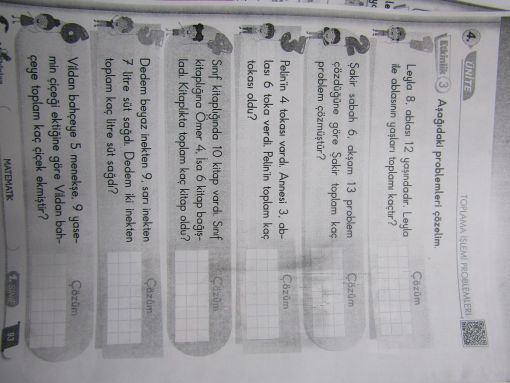 4. ÜNİTE
TOPLAMA İŞLEMİ PROBLEMLERİ
Etkinlik 3 Aşağıdaki problemleri çözelim.
1
Leyla 8, ablası 12 yaşındadır. Leyla
ile ablasının yaşları toplamı kaçtır?
Çözüm
2
Şakir sabah 6, akşam 13 problem
çözdüğüne göre Şakir toplam kaç
problem çözmüştür?
Çözüm
3
Pelin'in 4 tokası vardı. Annesi 3, ab-
lası 6 toka verdi. Pelin'in toplam kaç
tokası oldu?
Çözüm
4
Sınıf kitaplığında 10 kitap vardı. Sınıf
kitaplığına Ömer 4, İsa 6 kitap bağış-
ladı. Kitaplıkta toplam kaç kitap oldu?
Çözüm
5
Dedem beyaz inekten 9, sarı inekten
7 litre süt sağdı. Dedem iki inekten
toplam kaç litre süt sağdı?
Çözüm
6
Vildan bahçeye 5 menekşe, 9 yase-
min çiçeği ektiğine göre Vildan bah-
çeye toplam kaç çiçek ekmiştir?
Çözüm
MATEMATİK
1. SINIF
93